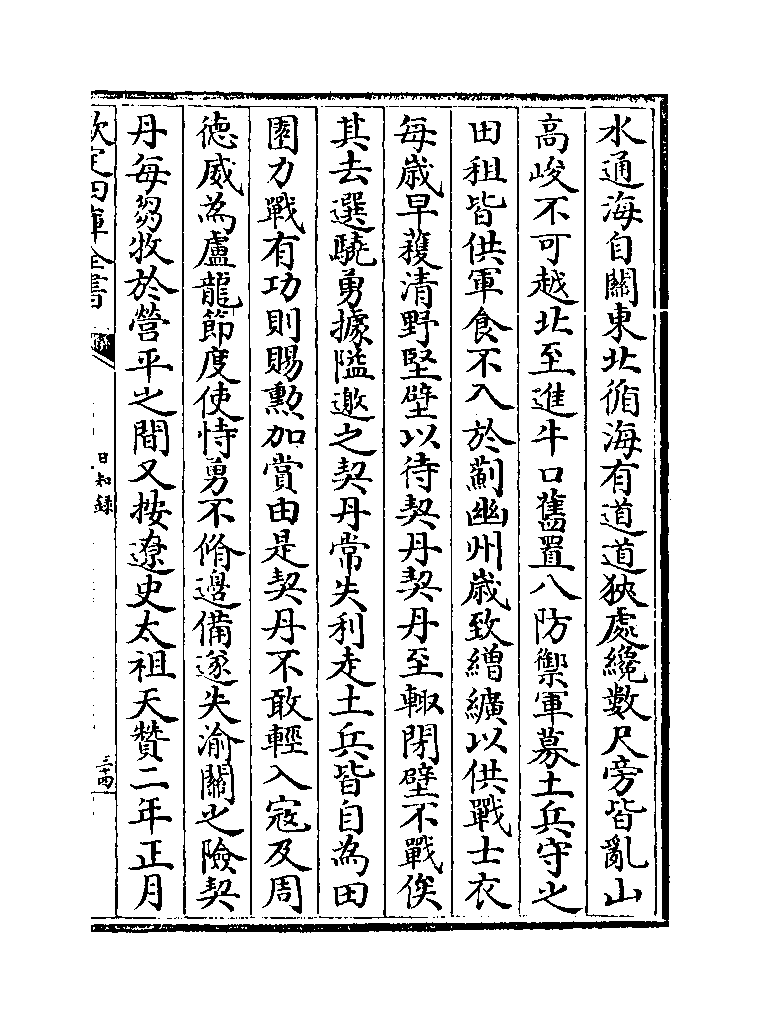 水通海自關東北循海有道道狹處纔數尺旁皆亂山
高峻不可越北至進牛口舊置八防禦軍募土兵守之
田租皆供軍食不入於薊幽州歲致繒纊以供戰士衣
每歲早穫清野堅壁以待契丹契丹至輙閉壁不戰俟
其去選驍勇據隘邀之契丹常失利走土兵皆自為田
園力戰有功則賜勲加賞由是契丹不敢輕入寇及周
德威為盧龍節度使恃勇不脩邊備遂失渝關之險契
丹每芻牧於營平之間又按遼史太祖天贊二年正月
欽定四庫全書
日知錄
三十四